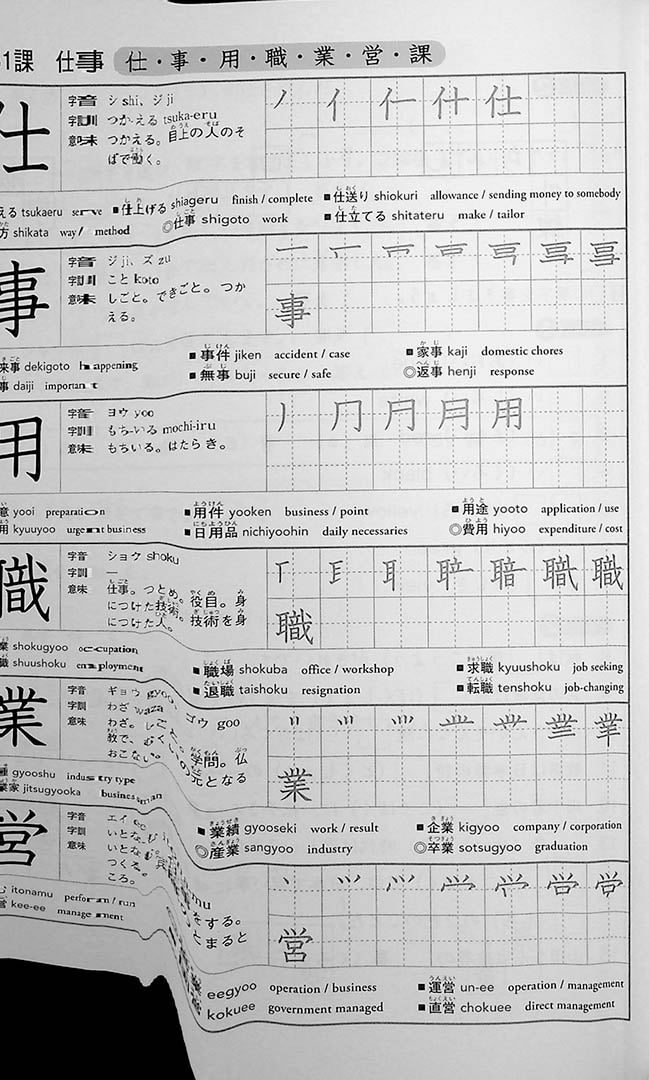 1課 仕事 仕・事・用・職・業・営・課
仕
字音 シ shi、ジ ji
字訓 つか-える tsuka-eru
意味 つかえる。目上の人のそ
ばで働く。
える tsukaeru serve ■仕上げる shiageru finish / complete ■仕送り shiokuri allowance / sending money to somebody
方 shikata way / method ◎仕事 shigoto work ■仕立てる shitateru make / tailor
事
字音 ジ ji、ズ zu
字訓 こと koto
意味 しごと。できごと。つか
える。
事
来事 dekigoto happening ■事件 jiken accident / case ■家事 kaji domestic chores
事 daiji important ■無事 buji secure / safe ◎返事 henji response
用
字音 ヨウ yoo
字訓 もち-いる mochi-iru
意味 もちいる。はたらき。
意 yooi preparation ■用件 yooken business / point ■用途 yooto application / use
用 kyuuyoo urgent business ■日用品 nichiyoohin daily necessaries ◎費用 hiyoo expenditure / cost
職
字音 ショク shoku
字訓 —
意味 仕事。つとめ。役目。身
につけた技術。技術を身
につけた人。
職
業 shokugyoo occupation ■職場 shokuba office / workshop ■求職 kyuushoku job seeking
職 shuushoku employment ■退職 taishoku resignation ■転職 tenshoku job-changing
業
字音 ギョウ gyoo、ゴウ goo
字訓 わざ waza
意味 わざ。しごと。学問。仏
教で、むくいの元となる
おこない。
業
種 gyooshu industry type ■業績 gyooseki work / result ■企業 kigyoo company / corporation
業家 jitsugyooka businessman ◎産業 sangyoo industry ◎卒業 sotsugyoo graduation
営
字音 エイ
字訓 いとな
意味 いとな をする。
つくる。 とまると
ころ。
営
む itonamu perform / run eegyoo operation / business ■運営 un-ee operation / management
営 kee-ee management kokuee government managed ■直営 chokuee direct management